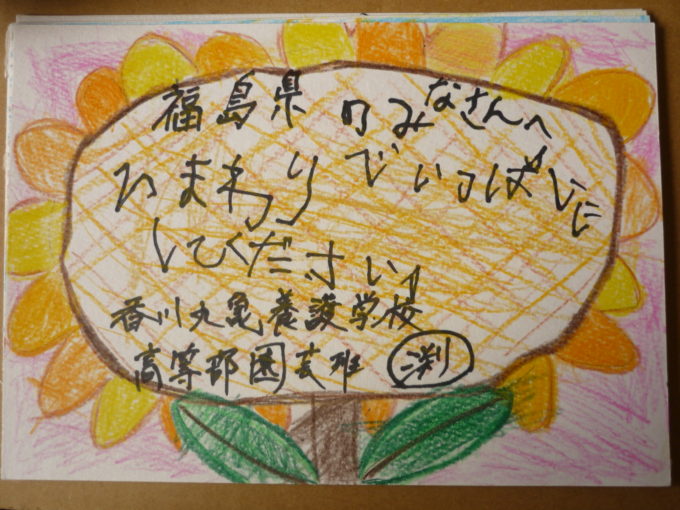 福島県のみなさんへ
ひまわりでいっぱいに
してください。
香川丸亀養護学校
高等部園芸班 渕